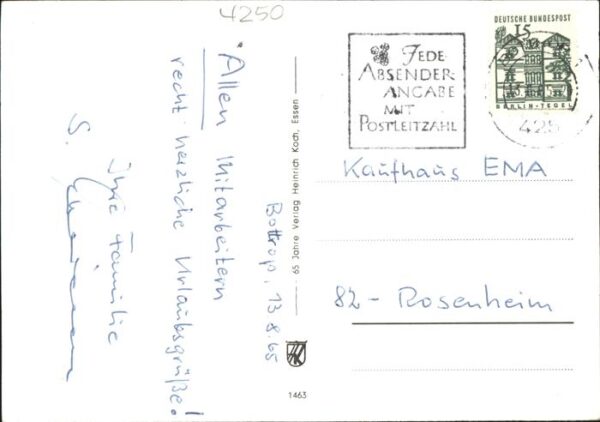 4250
DEUTSCHE BUNDESPOST
15
BERLIN-TEGEL
JEDE
ABSENDER-
ANGABE
MIT
POSTLEITZAHL
425
Kaufhaus EMA
82 - Rosenheim
65 Jahre Verlag Heinrich Koch, Essen
1463
Bottrop, 13.8.65
Allen Mitarbeitern
recht herzliche Urlaubsgrüße!
Ihre Familie
S.